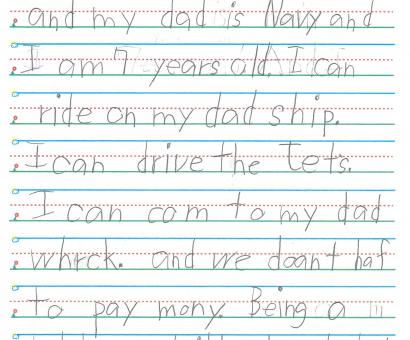 and my dad is Navy and
I am 7 years old. I can
ride on my dad ship.
I can drive the Tets.
I can com to my dad
whrck. and we doant haf
to pay mony. Being a